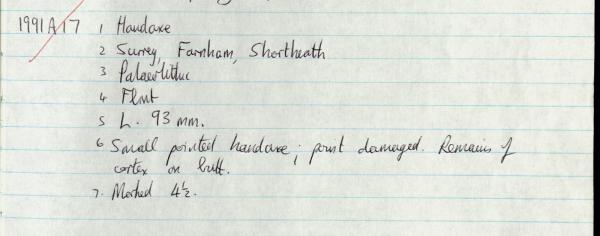 1991A17 1 Handaxe
2 Surrey, Farnham, Shortheath
3 Palaeolithic
4 Flint
5 L. 93 mm.
6 Small pointed handaxe; point damaged. Remains of
cortex on butt.
7. Marked 4½.